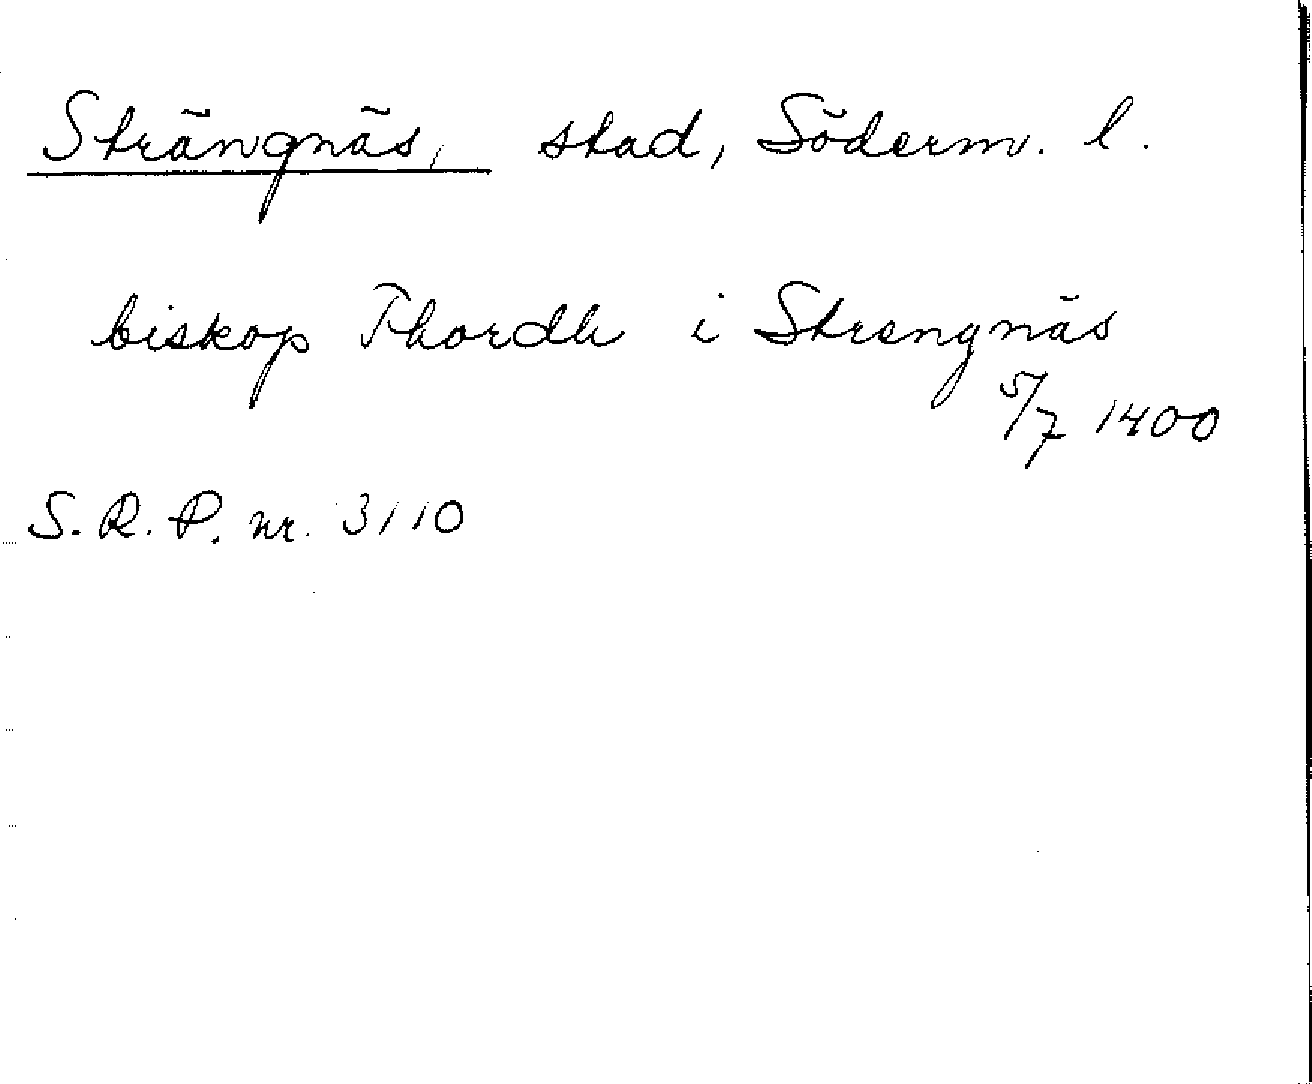 Strängnäs, stad, Söderm. l.
biskop Thordh i Strengnäs
5/7 1400
S. R. P. nr. 3110